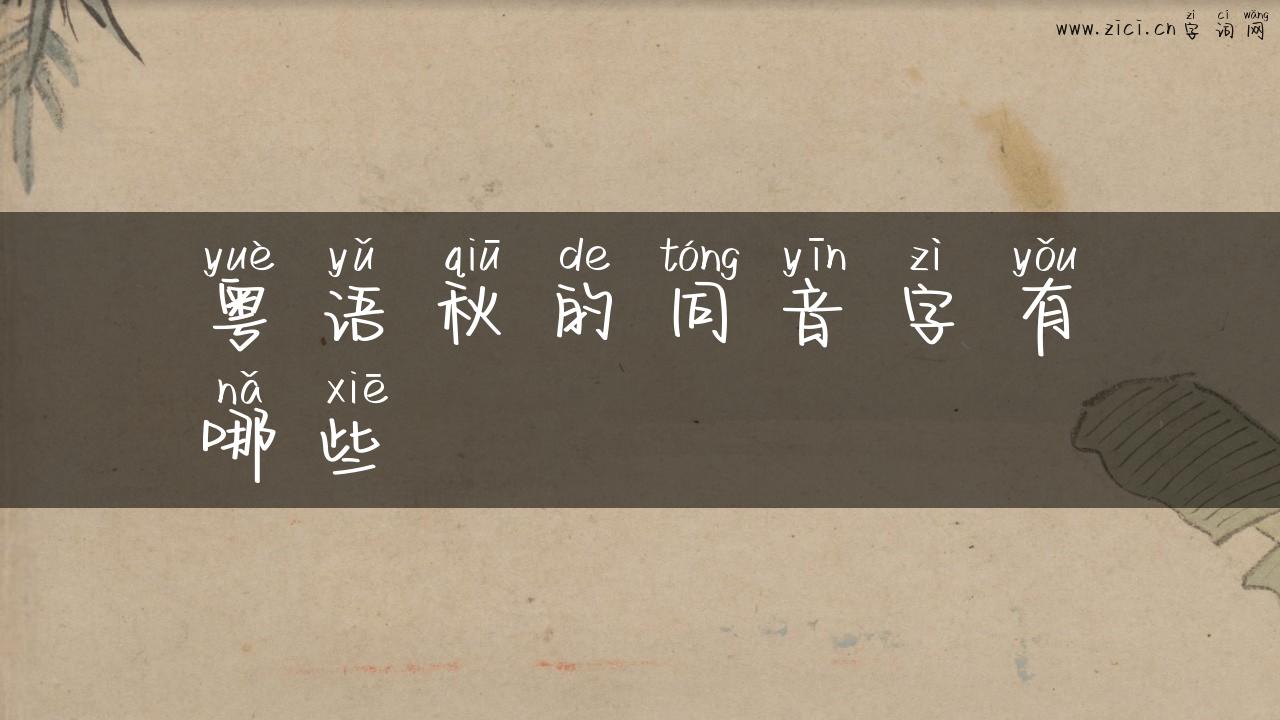 zì cí wǎng
www.zici.cn 字词网
yuè yǔ qiū de tóng yīn zì yǒu
粤语秋的同音字有
nǎ xiē
哪些